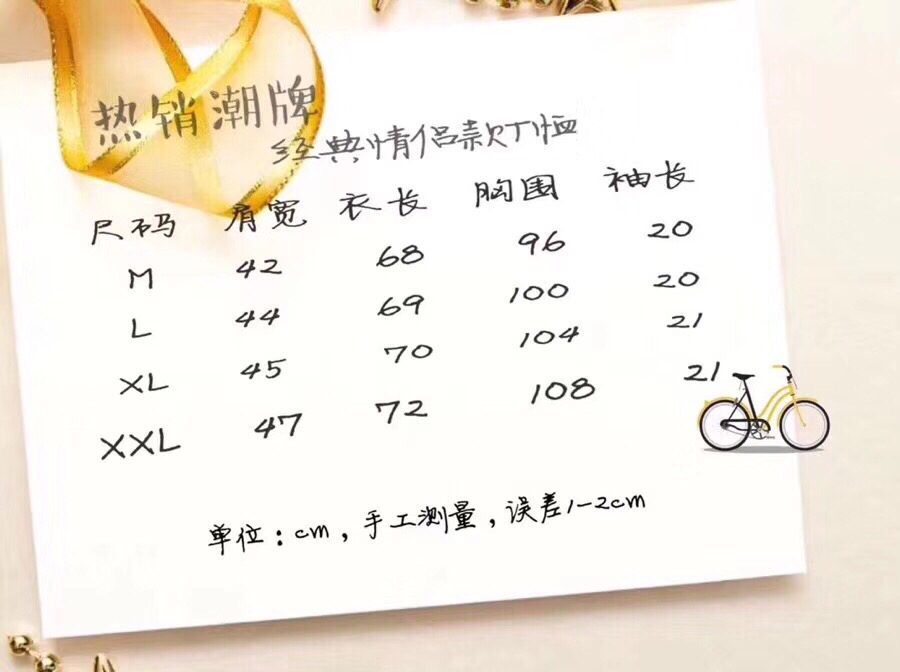 热销潮牌
经典情侣款T恤
尺码 肩宽 衣长 胸围 袖长
M 42 68 96 20
L 44 69 100 20
XL 45 70 104 21
XXL 47 72 108 21
单位：cm，手工测量，误差1-2cm